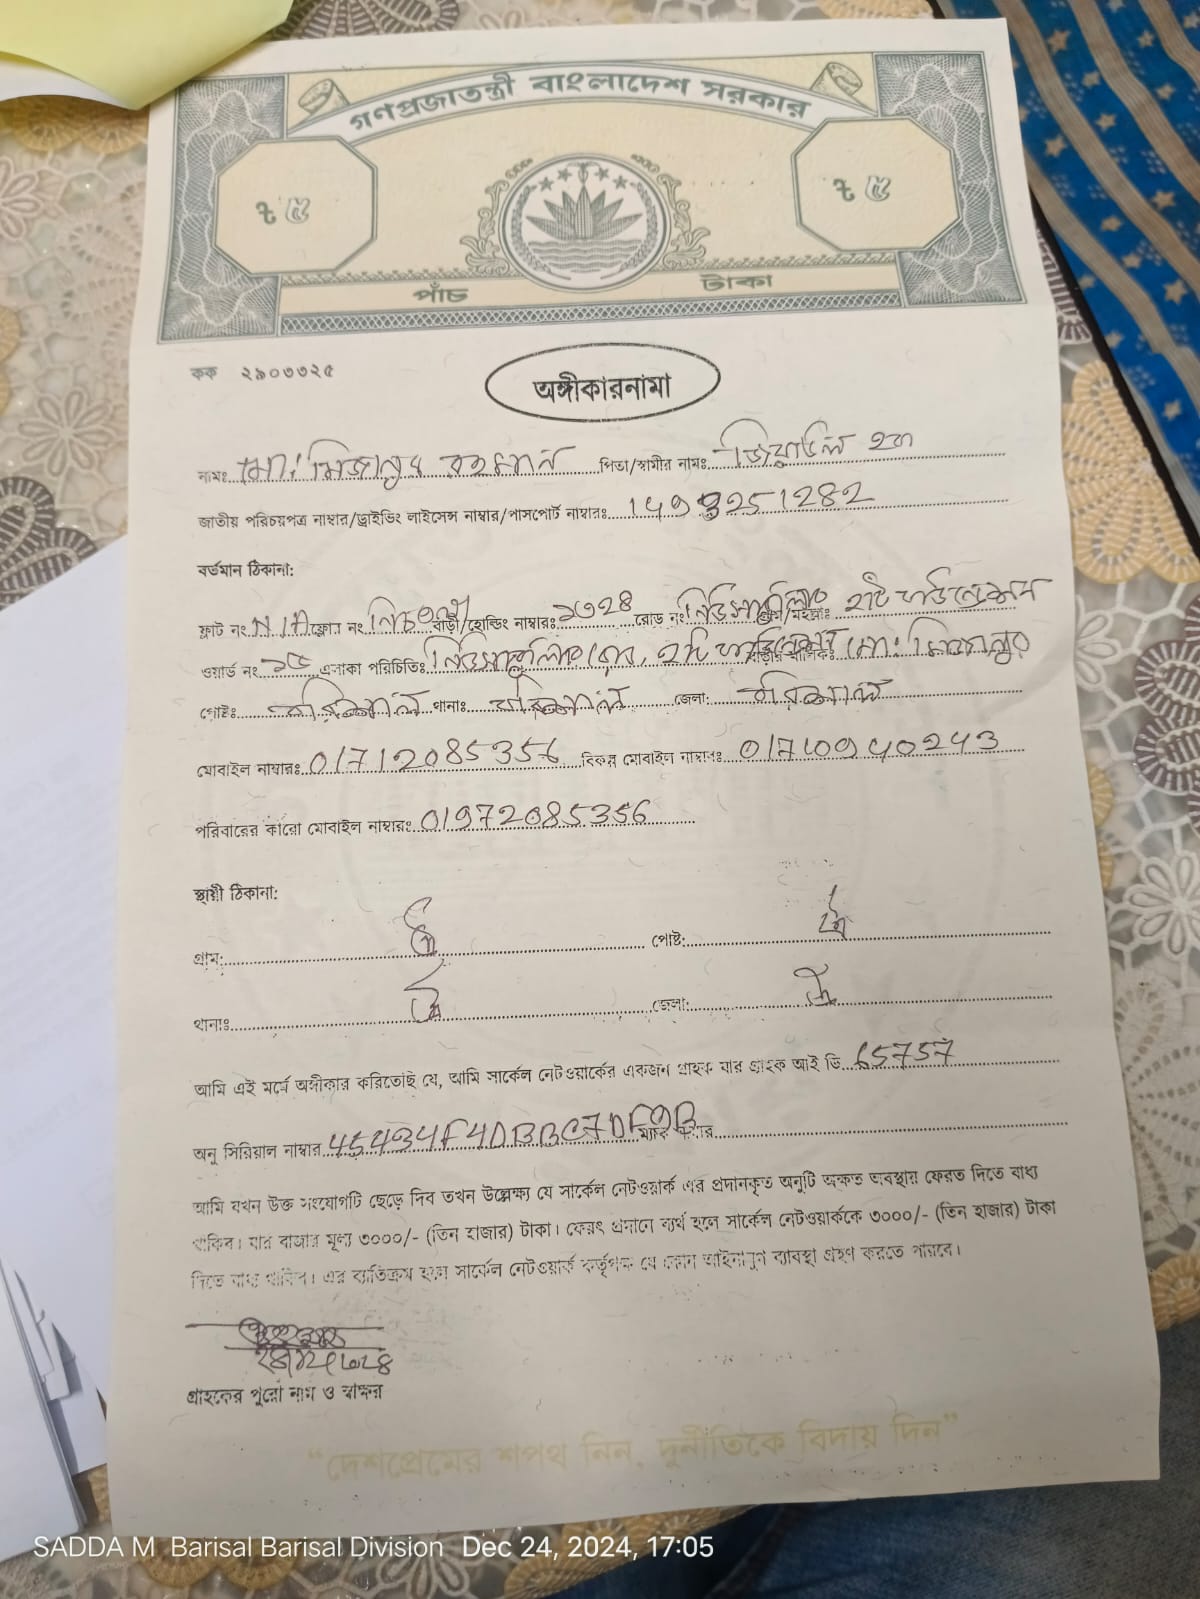 গণপ্রজাতন্ত্রী বাংলাদেশ সরকার
৳ ৫ ৳ ৫
পাঁচ টাকা
কক ২৯০৩৩২৫
অঙ্গীকারনামা
নামঃ মোঃ মিজানুর রহমান পিতা/স্বামীর নামঃ জিয়াউল হক
জাতীয় পরিচয়পত্র নাম্বার/ড্রাইভিং লাইসেন্স নাম্বার/পাসপোর্ট নাম্বারঃ
বর্তমান ঠিকানা:
ফ্লাট নং N/A ফ্লোর নং নিচতলা বাড়ী/হোল্ডিং নাম্বারঃ রোড নং
ওয়ার্ড নং এলাকা পরিচিতিঃ মোঃ মিজানুর
পোষ্টঃ বরিশাল থানাঃ বরিশাল জেলা: বরিশাল
মোবাইল নাম্বারঃ 01712085356 বিকল্প মোবাইল নাম্বারঃ 01710940243
পরিবারের কারো মোবাইল নাম্বারঃ 01972085356
স্থায়ী ঠিকানা:
গ্রাম: ঐ পোষ্ট: ঐ
থানাঃ ঐ জেলা: ঐ
আমি এই মর্মে অঙ্গীকার করিতেছি যে, আমি সার্কেল নেটওয়ার্কের একজন গ্রাহক যার গ্রাহক আই ডি 65757
অনু সিরিয়াল নাম্বার
আমি যখন উক্ত সংযোগটি ছেড়ে দিব তখন উল্লেক্ষ্য যে সার্কেল নেটওয়ার্ক এর প্রদানকৃত অনুটি অক্ষত অবস্থায় ফেরত দিতে বাধ্য
থাকিব। যার বাজার মূল্য ৩০০০/- (তিন হাজার) টাকা। ফেরৎ প্রদানে ব্যর্থ হলে সার্কেল নেটওয়ার্ককে ৩০০০/- (তিন হাজার) টাকা
দিতে বাধ্য থাকিব। এর ব্যতিক্রম হলে সার্কেল নেটওয়ার্ক কর্তৃপক্ষ যে কোন আইনানুগ ব্যাবস্থা গ্রহণ করতে পারবে।
গ্রাহকের পুরো নাম ও স্বাক্ষর
“দেশপ্রেমের শপথ নিন, দুর্নীতিকে বিদায় দিন”
SADDA M Barisal Barisal Division Dec 24, 2024, 17:05